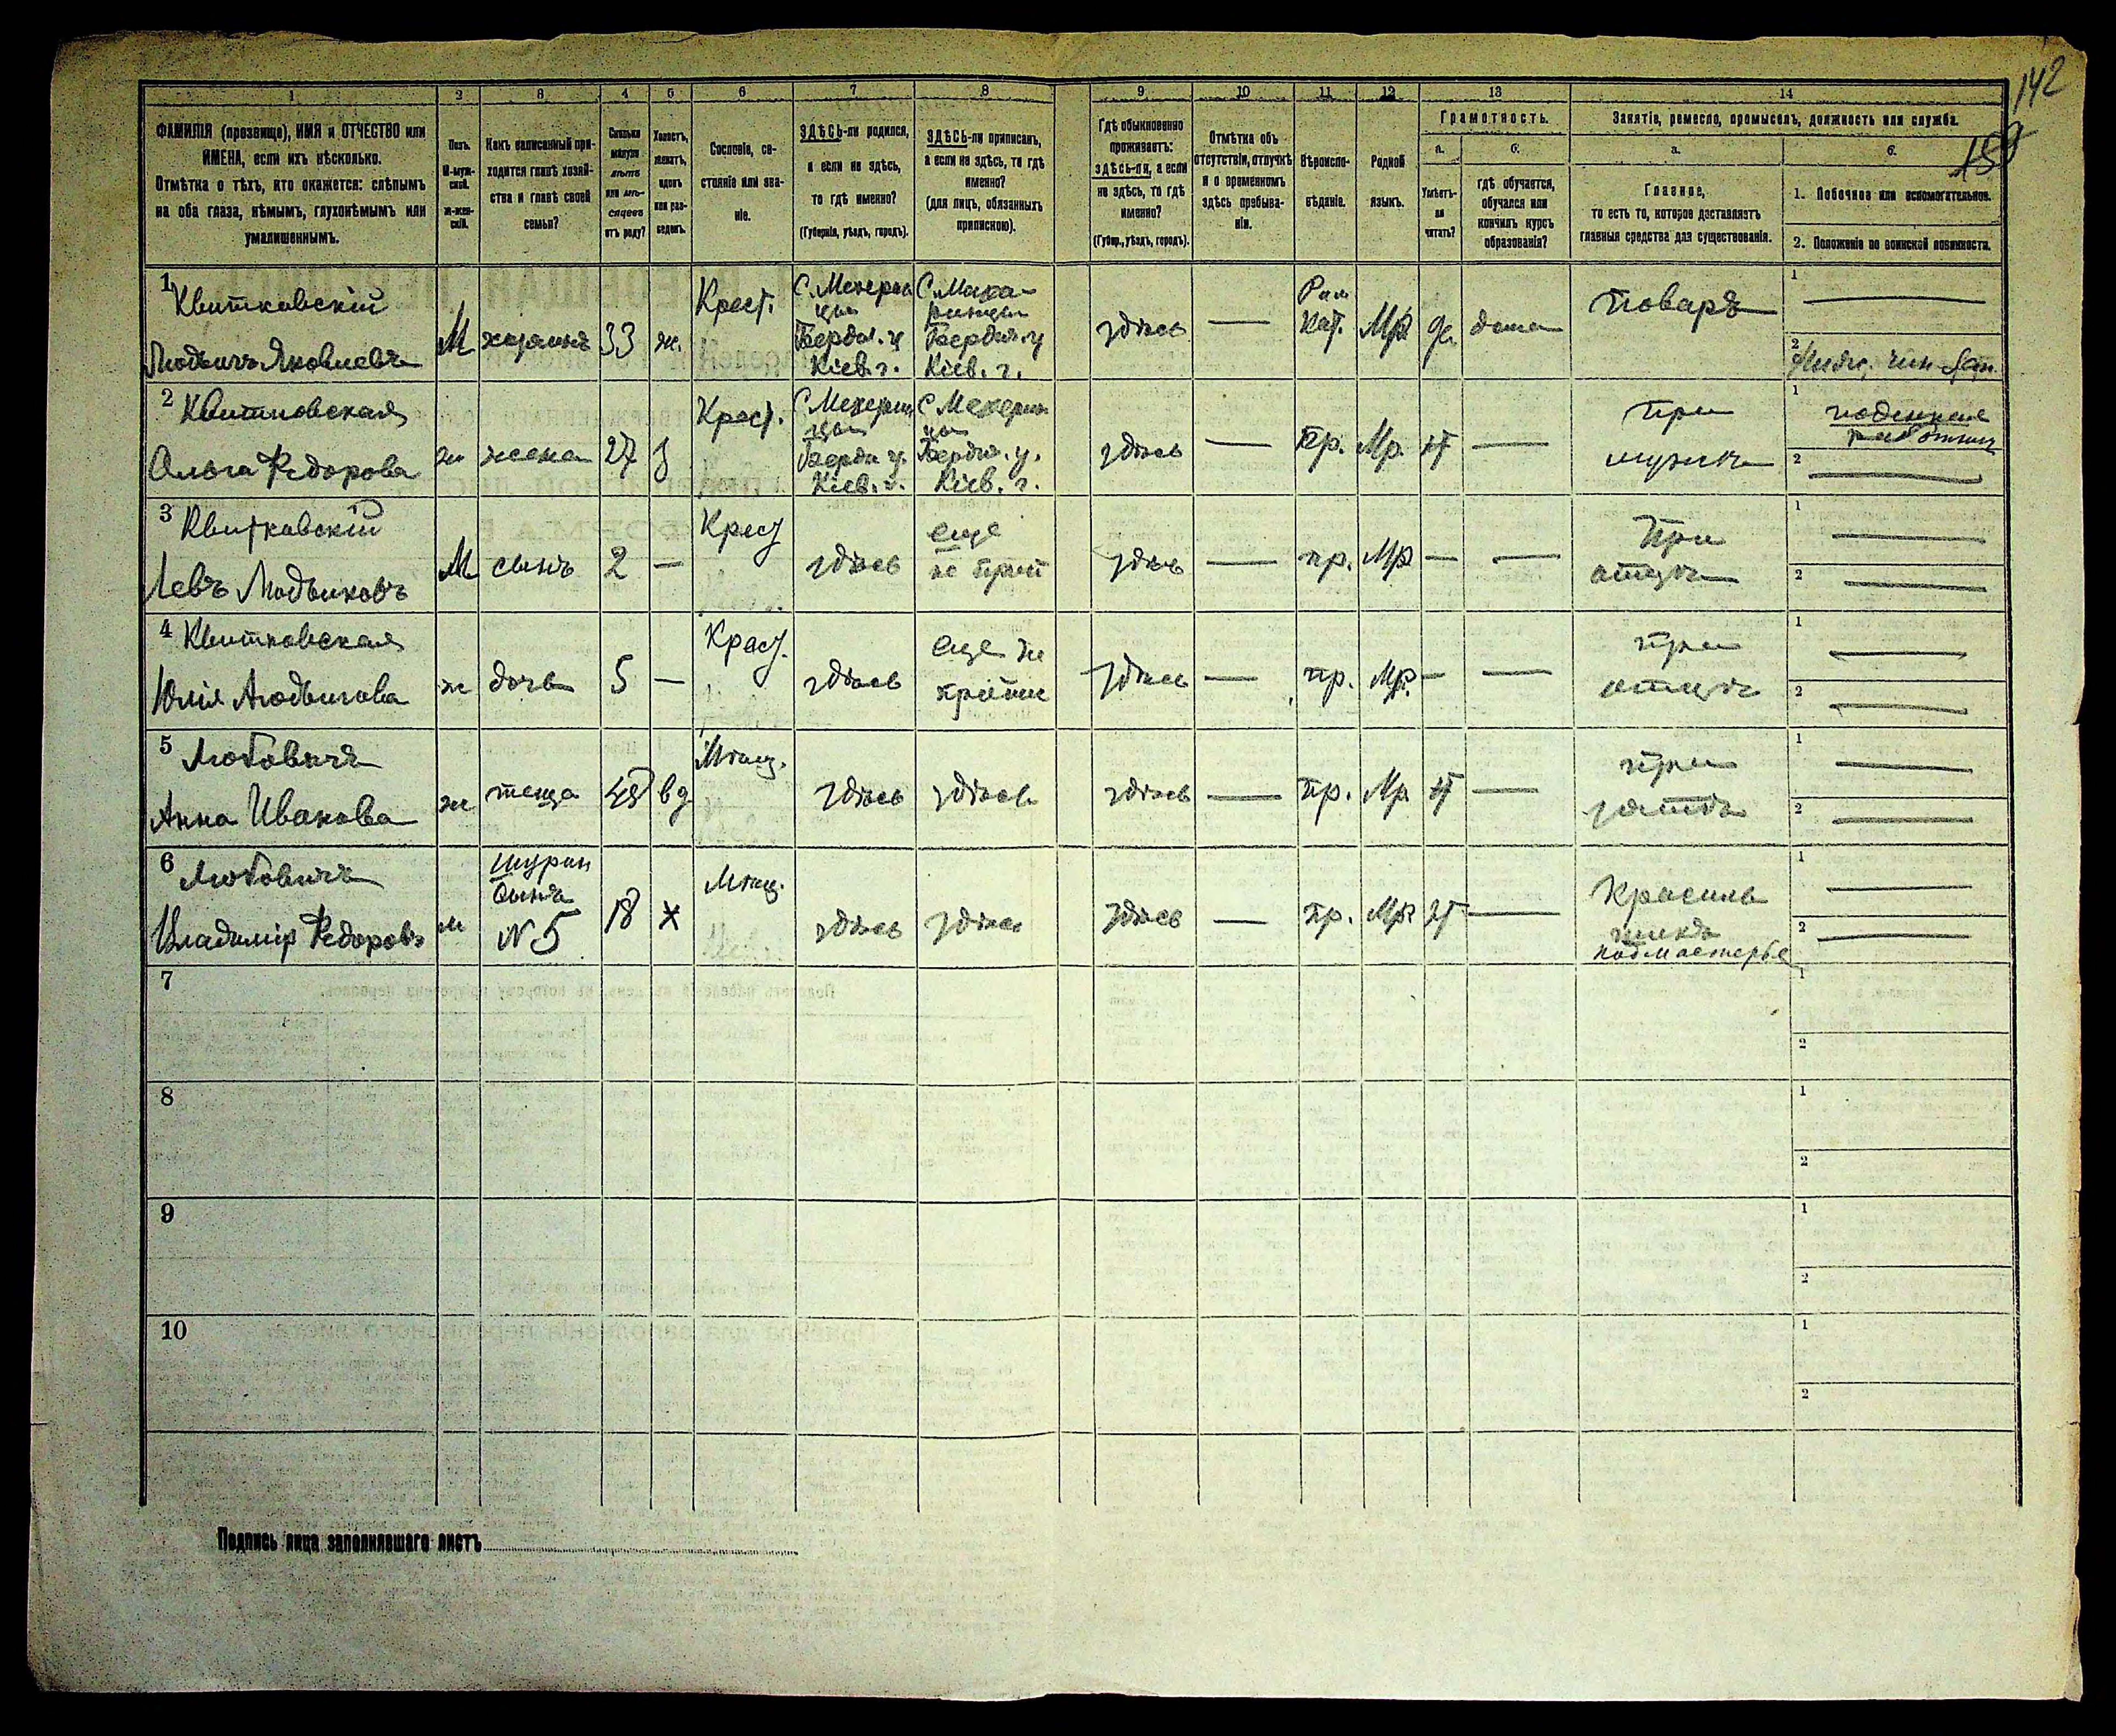 142
159
1 2 3 4 5 6 7 8 9 10 11 12 13 14
ФАМИЛІЯ (прозвище), ИМЯ и ОТЧЕСТВО или
ИМЕНА, если ихъ нѣсколько.
Отмѣтка о тѣхъ, кто окажется: слѣпымъ
на оба глаза, нѣмымъ, глухонѣмымъ или
умалишеннымъ.
Полъ.
М-муж-
ской.
Ж-жен-
скій.
Какъ записанный при-
ходится главѣ хозяй-
ства и главѣ своей
семьи?
Сколько
минуло
лѣтъ
или мѣ-
сяцевъ
отъ роду?
Холостъ,
женатъ,
вдовъ
или раз-
веденъ.
Сословіе, со-
стояніе или зва-
ніе.
ЗДѢСЬ-ли родился,
а если не здѣсь,
то гдѣ именно?
(Губернія, уѣздъ, городъ).
ЗДѢСЬ-ли приписанъ,
а если не здѣсь, то гдѣ
именно?
(для лицъ, обязанныхъ
припискою).
Гдѣ обыкновенно
проживаетъ:
здѣсь-ли, а если
не здѣсь, то гдѣ
именно?
(Губер., уѣздъ, городъ).
Отмѣтка объ
отсутствіи, отлучкѣ
и о временномъ
здѣсь пребыва-
ніи.
Вѣроиспо-
вѣданіе.
Родной
языкъ.
Грамотность.
а.
Умѣетъ-
ли
читать?
б.
гдѣ обучается,
обучался или
кончилъ курсъ
образованія?
Занятіе, ремесло, промыселъ, должность или служба.
а.
Главное,
то есть то, которое доставляетъ
главныя средства для существованія.
б.
1. Побочное или вспомогательное.
2. Положеніе по воинской повинности.
1 Квитковскій
Людвигъ Яковлевъ
М хозяинъ 33 ж.
Крест.
Бердич. у
Кіев. г.
Бердич. у
Кіев. г.
здѣсь —
Рим
Кат.
Мр да дома
поваръ
1 —
2
2 Квитковская
Ольга Федорова
ж жена 27 з
Крест.
Кіев. г.
Бердич. у.
Кіев. г.
здѣсь — пр. Мр. н —
при
мужѣ
1 поденная
2 —
3 Квитковскій
Левъ Людвиковъ
М сынъ 2 —
Крест
здѣсь
еще
не прип
здѣсь — пр. Мр — —
При
отцѣ
1 —
2 —
4 Квитковская
Юлія Людвигова
ж дочь 5 —
Крест.
здѣсь
еще не
здѣсь — пр. Мр. — —
при
отцѣ
1 —
2 —
5 Любовичъ
Анна Иванова
ж теща 48 вд
Мѣщ.
здѣсь здѣсь здѣсь — пр. Мр н —
при
зятѣ
1 —
2 —
6 Любовичъ
Владиміръ Федоровъ
м
шурин
сынъ
№ 5
18 х
Мѣщ.
здѣсь здѣсь здѣсь — пр. Мр —
Красиль
щикъ
подмастерье
1 —
2 —
7
1
2
8
1
2
9
1
2
10
1
2
Подпись лица заполнявшаго листъ